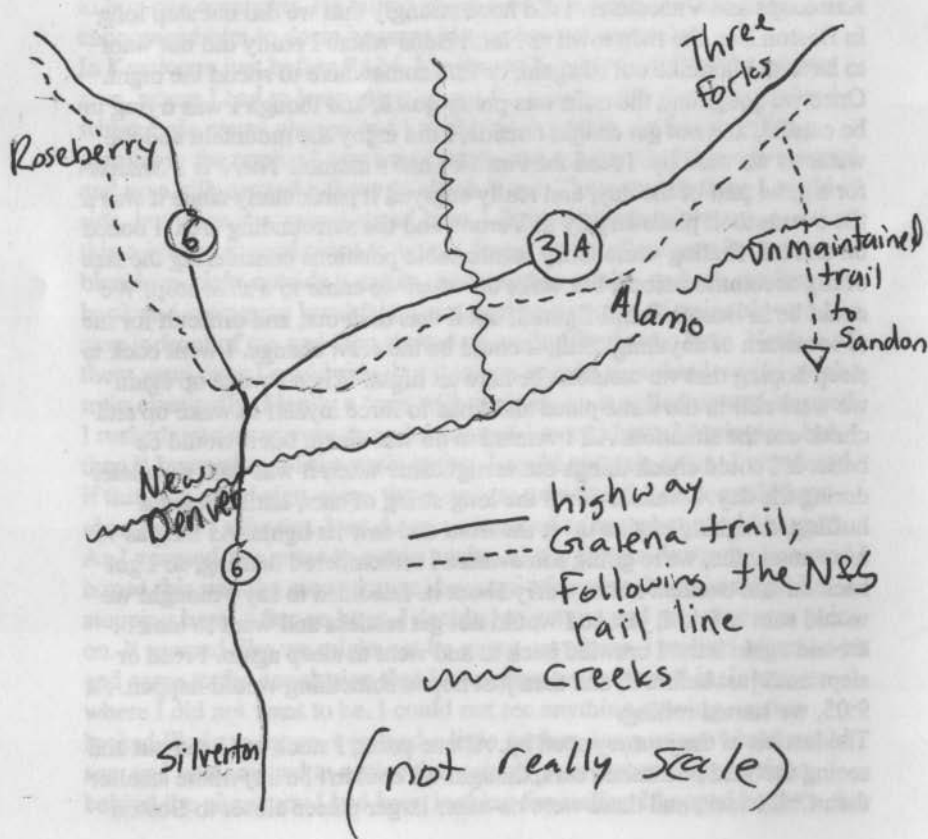 Three
Forks
Roseberry
6
31A
Unmaintained
trail
to
Sandon
Alamo
New
Denver
6
highway
Galena trail,
Following the N&S
rail line
Creeks
Silverton
(not really scale)